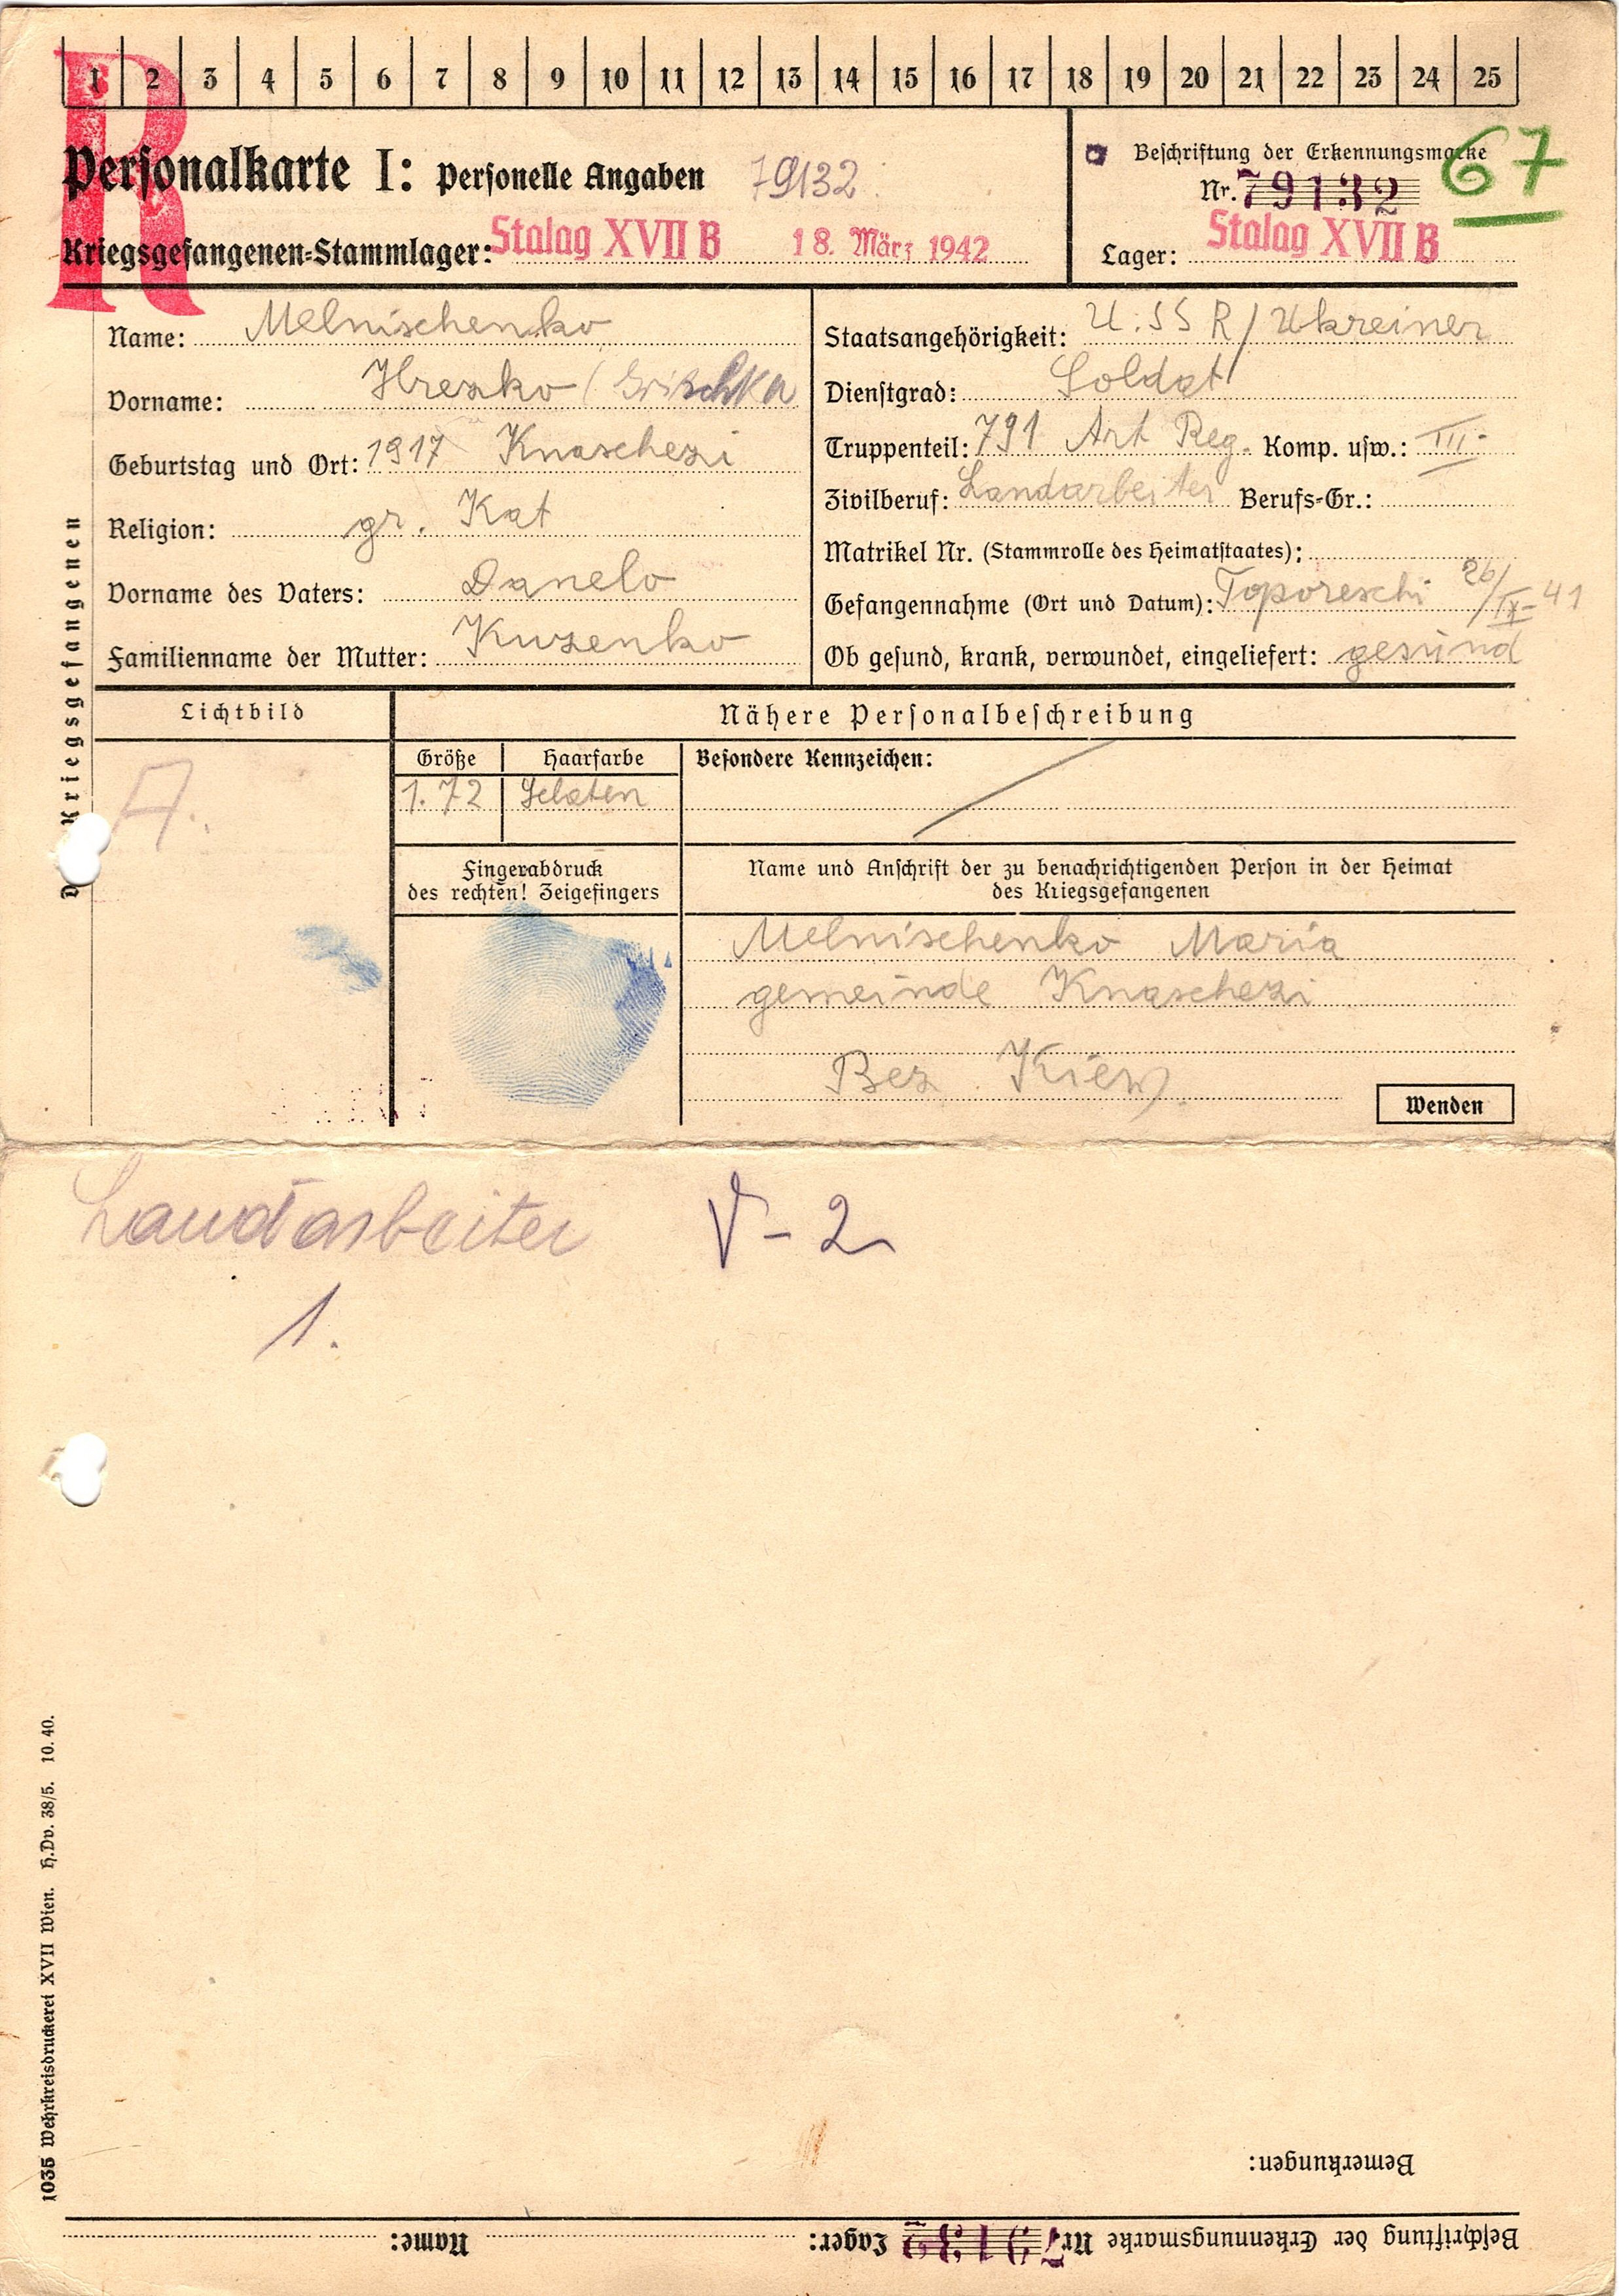 1 2 3 4 5 6 7 8 9 10 11 12 13 14 15 16 17 18 19 20 21 22 23 24 25
R
Personalkarte I: Personelle Angaben 79132
Kriegsgefangenen-Stammlager: Stalag XVII B 18. März 1942
Beschriftung der Erkennungsmarke
Nr. 79132
67
Lager: Stalag XVII B
Des Kriegsgefangenen
Name: Melnischenko
Vorname: Hrezko (Grischka
Geburtstag und Ort: 1917 Knaschezi
Religion: gr. Kat
Vorname des Vaters: Danelo
Familienname der Mutter: Kuzenko
Staatsangehörigkeit: U.SSR/Ukreiner
Dienstgrad: Soldat
Truppenteil: 791 Art Reg. Komp. usw.: III.
Zivilberuf: Landarbeiter Berufs-Gr.:
Matrikel Nr. (Stammrolle des Heimatstaates):
Gefangennahme (Ort und Datum): Toporeschi 26/IX-41
Ob gesund, krank, verwundet, eingeliefert: gesund
Lichtbild
A.
Nähere Personalbeschreibung
Größe Haarfarbe Besondere Kennzeichen:
1.72
Fingerabdruck
des rechten! Zeigefingers
Name und Anschrift der zu benachrichtigenden Person in der Heimat
des Kriegsgefangenen
Melnischenko Maria
gemeinde Knaschezi
Bez. Kiew
Wenden
Landarbeiter V-2
1.
1035 Wehrkreisdruckerei XVII Wien. H.Dv. 38/5. 10.40.
Bemerkungen:
Beschriftung der Erkennungsmarke Nr. 79132 Lager: Name: